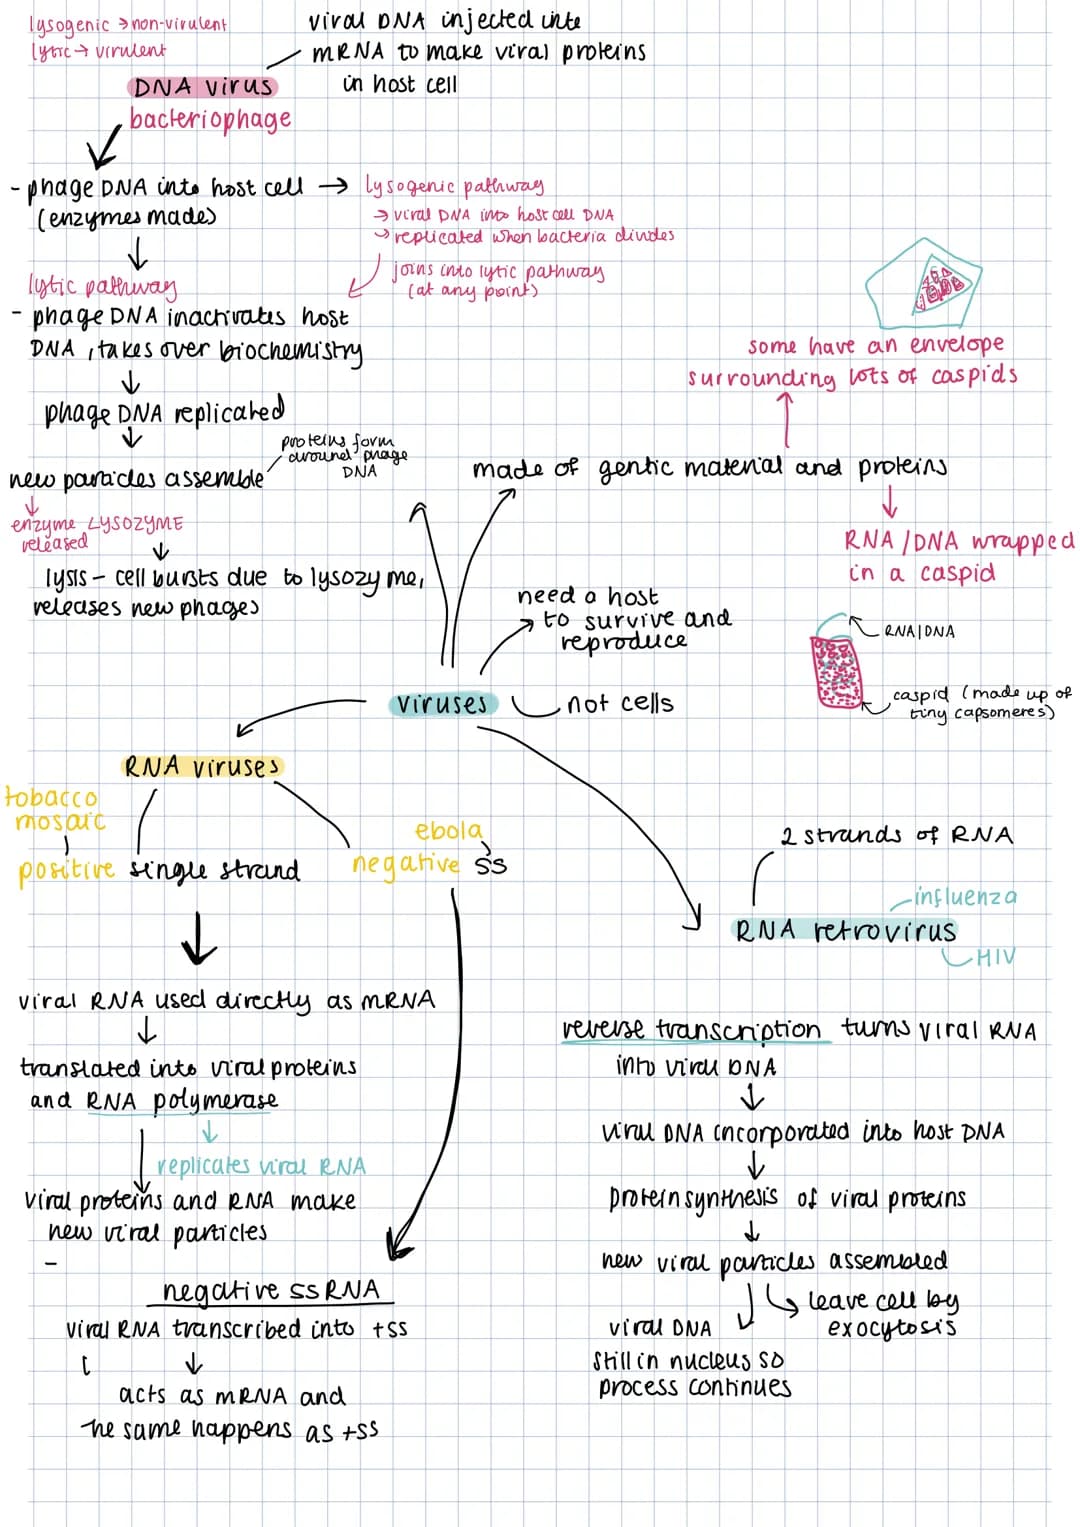 lysogenic → non-virulent
lytic → virulent
viral DNA injected into
mRNA to make viral proteins
in host cell
DNA virus
bacteriophage
- phage DNA into host cell →
(enzymes mades)
lysogenic pathway
→ viral DNA into host cell DNA
→ replicated when bacteria divides
joins into lytic pathway
(at any point)
lytic pathway
- phage DNA inactivates host
DNA, takes over biochemistry
phage DNA replicated
proteins form
around phage
DNA
new particles assemble
enzyme LYSOZYME
released
lysis - cell bursts due to lysozyme,
releases new phages
some have an envelope
surrounding lots of caspids
made of gentic material and proteins
RNA/DNA wrapped
in a caspid
RNA|DNA
caspid (made up of
tiny capsomeres)
need a host
to survive and
reproduce
viruses
not cells
RNA viruses
tobacco
mosaic
positive single strand
ebola
negative ss
viral RNA used directly as mRNA
translated into viral proteins
and RNA polymerase
replicates viral RNA
viral proteins and RNA make
new viral particles
-
negative ssRNA
viral RNA transcribed into +ss
acts as mRNA and
the same happens as +ss
2 strands of RNA
influenza
RNA retrovirus
HIV
reverse transcription turns viral RNA
into viral DNA
viral DNA incorporated into host DNA
protein synthesis of viral proteins
new viral particles assembled
leave cell by
exocytosis
viral DNA
still in nucleus so
process continues